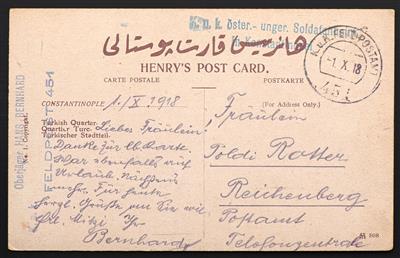 K. u. k. öster.-ungar. Soldatenheim
هانریس قارت پوستالی
HENRY'S POST CARD.
CARTE POSTALE
POSTKARTE
K.u.K. FELDPOSTAMT
-1.X.18
451
CONSTANTINOPLE
1./X 1918
(For Address Only.)
Turkish Quarter.
Quartier Turc.
Türkischer Stadtteil.
Oberjäger HANS BERNHARD
FELDPOST 451
Liebes Fräulein!
Danke für lb. Karte.
War ebenfalls auf
Urlaub. Nächstens
mehr. Für heute
herzl. Grüße an Sie wie
Frl. Mitzi Ihr
Bernhard
Fräulein
Poldi Rotter
Reichenberg
Postamt
Telefonzentrale
808